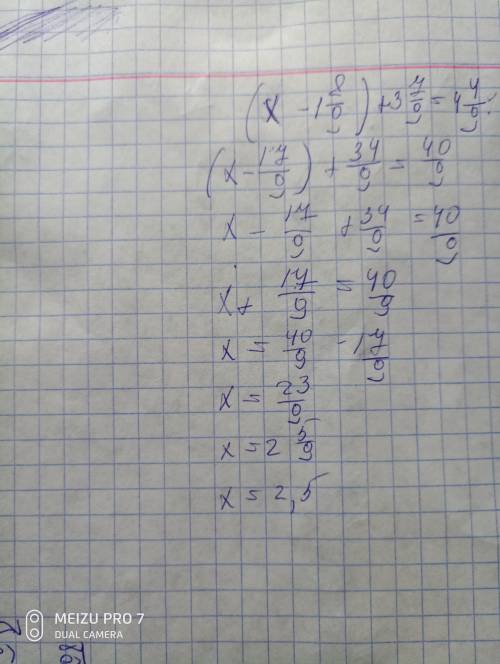 (x - 1 8/9) + 3 7/9 = 4 4/9
(x - 17/9) + 34/9 = 40/9
x - 17/9 + 34/9 = 40/9
x + 17/9 = 40/9
x = 40/9 - 17/9
x = 23/9
x = 2 5/9
x = 2,5
MEIZU PRO 7
DUAL CAMERA